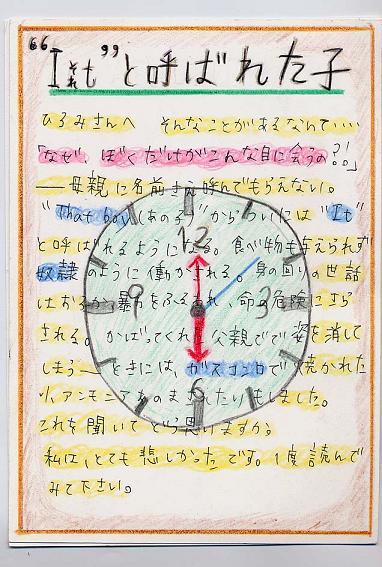 “It それ”と呼ばれた子
ひろみさんへ そんなことがあるなんて・・・
「なぜ、ぼくだけがこんな目に会うの?!」
── 母親に名前さえ呼んでもらえない。
“That boy（あの子）”からついには“It”
と呼ばれるようになる。食べ物も与えられず
奴隷のように働かされる。身の回りの世話
はおろか、暴力をふるわれ、命を危険にさら
される。かばってくれた父親でで姿を消して
しまう── ときには、ガスコンロで焼かれた
り、アンモニアをのまされたりもしました。
これを聞いてどう思いますか。
私は、とても悲しかったです。1度読んで
みて下さい。
12
9
3
6